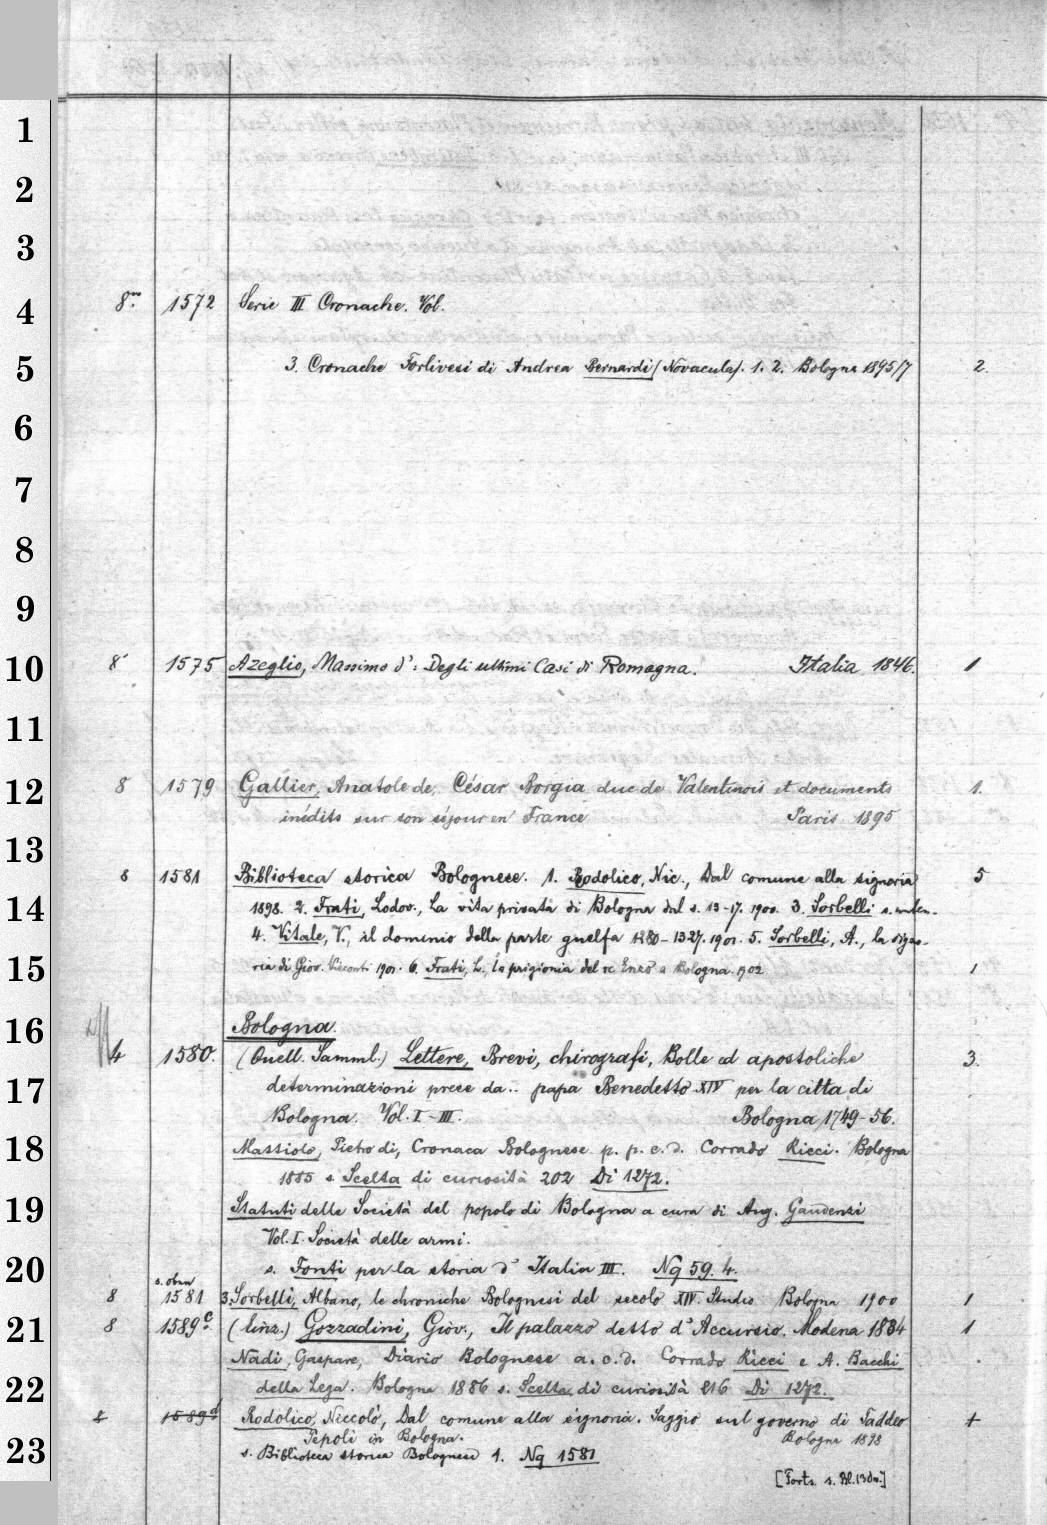 1
2
3
4 8º 1572 Serie III Cronache. Vol.
5 3. Cronache Forlivesi di Andrea Bernardi (Novacula). 1. 2. Bologna 1895/7 2.
6
7
8
9
10 8º 1575 Azeglio, Massimo d': Degli ultimi Casi di Romagna. Italia 1846. 1
11
12 8 1579 Gallier, Anatole de, César Borgia duc de Valentinois et documents 1.
inédits sur son séjour en France Paris 1895
13 8 1581 Biblioteca storica Bolognese. 1. Rodolico, Nic., Dal comune alla signoria 5
14 1898. 2. Frati, Lodov., La vita privata di Bologna dal s. 13-17. 1900. 3. Sorbelli s. unten.
4. Vitale, V., il dominio della parte guelfa 1280-1327. 1901. 5. Sorbelli, A., la signo-
15 ria di Giov. Visconti 1901. 6. Frati, L., la prigionia del re Enzo a Bologna. 1902 1
16 Bologna.
4 1580. (Quell. Samml.) Lettere, Brevi, chirografi, Bolle ed apostoliche 3.
17 determinazioni prese da .. papa Benedetto XIV per la citta di
Bologna. Vol. I-III. Bologna 1749-56.
18 Mattiolo, Pietro di, Cronaca Bolognese p. p. c. d. Corrado Ricci. Bologna
1885 s. Scelta di curiosità 202 Di 1272.
19 Statuti delle Società del popolo di Bologna a cura di Aug. Gaudenzi
Vol. I. Società delle armi.
20 s. Fonti per la storia d'Italia III. Nq 59. 4.
s. oben
8 1581 3. Sorbelli, Albano, le chroniche Bolognesi del secolo XIV. Studio Bologna 1900 1
21 8 1589c (linz.) Gozzadini, Giov., Il palazzo detto d'Accursio. Modena 1884 1
Nadi, Gaspare, Diario Bolognese a. c. d. Corrado Ricci e A. Bacchi
22 della Lega. Bologna 1886 s. Scelta di curiosità 216 Di 1272.
8 1589d Rodolico, Niccolò, Dal comune alla signoria. Saggio sul governo di Taddeo 1
Pepoli in Bologna. Bologna 1898
23 s. Biblioteca storica Bolognese 1. Nq 1581
[Forts. s. Bl.